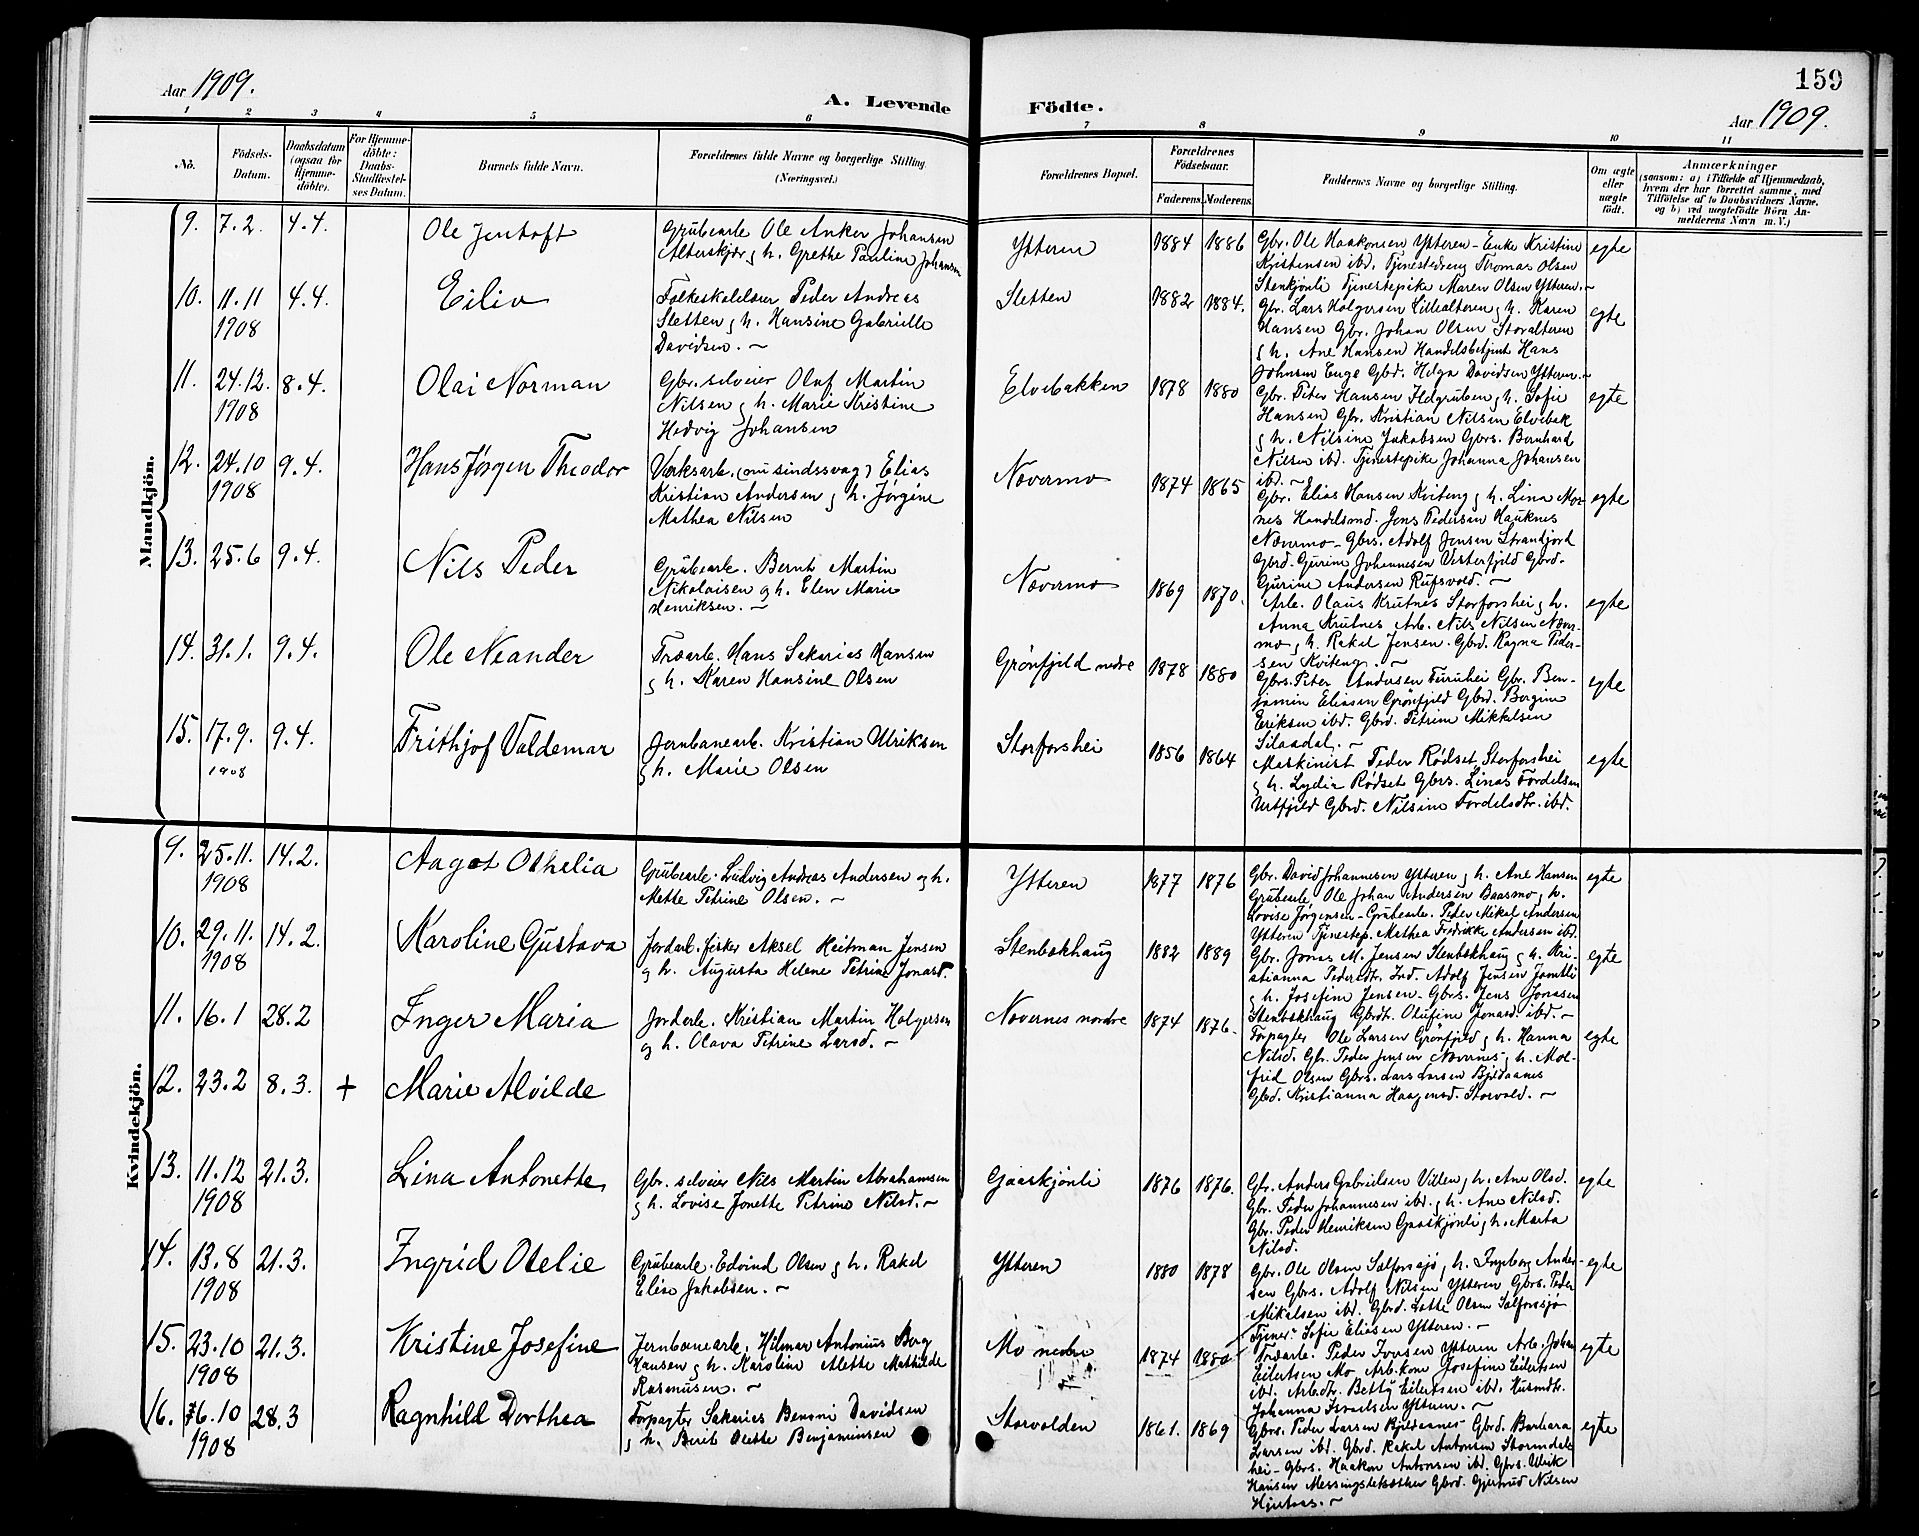 159
Aar 1909.
A. Levende Födte.
Aar 1909.
1 2 3 4 5 6 7 8 9 10 11
No.
Födsels-
Datum.
Daabsdatum
(ogsaa for
Hjemme-
döbte).
For Hjemme-
döbte:
Daabs-
Stadfæstel-
ses Datum.
Barnets fulde Navn.
Forældrenes fulde Navne og borgerlige Stilling.
(Næringsvei.)
Forældrenes Bopæl.
Forældrenes
Födselsaar.
Faderens. Moderens.
Faddernes Navne og borgerlige Stilling.
Om ægte
eller
uægte
födt.
Anmærkninger
(saasom: a) i Tilfælde af Hjemmedaab,
hvem der har forrettet samme, med
Tilföielse af to Daabsvidners Navne.
og b) ved uægtefödte Börn An-
melderens Navn m. V.)
Mandkjön.
9. 7.2. 4.4. Ole Jentoft
Grubearb. Ole Anker Johansen
Alterskjær g h. Grethe Pauline Johansen
Ytteren 1884 1886
Gbr. Ole Haakonsen Ytteren - Enke Kristine
Kristensen ibd. Tjenestedreng Thomas Olsen
Stenkjönli Tjenestepike Maren Olsen Ytteren. ~
egte
10. 11.11 1908 4.4. Eiliv
Folkeskolelærer Peder Andreas
Sletten g h. Hansine Gabrielle
Davidsen. ~
Sletten 1882 1884.
Gbr. Lars Holgersen Lillealteren g h. Karen
Hansen Gbr. Johan Olsen Storalteren
g h. Ane Hansen Handelsbetjent Hans
Johnsen Enge Gbd. Helga Davidsen Ytteren. ~
egte
11. 24.12. 1908 8.4. Olai Norman
Gbr. selveier Oluf Martin
Nilsen g h. Marie Kristine
Hedvig Johansen
Elvebakken 1878 1880
Gbr. Peter Hansen Ildgruben g h. Sofie
Hansen Gbr. Kristian Nilsen Elvebak
g h. Nilsine Jakobsen Gbrs. Bernhard
Nilsen ibd. Tjenestepike Johanna Johansen
ibd. ~
egte
12. 24.10 1908 9.4. Hans Jørgen Theodor
Verksarb. (nu sindssvag) Elias
Kristian Andersen g h. Jørgine
Mathea Nilsen
Nævermo 1874 1865
Gbr. Elias Hansen Kviteng g h. Lina Mor-
nes Handelsmd. Jens Pedersen Hauknes
Nævermo - Gbrs. Adolf Jensen Strandjord
Gbrd. Gurine Johannesen Vesterfjeld Gbrd.
Gurine Andersen Rufsvold. ~
egte
13. 25.6 9.4. Nils Peder
Grubearb. Bernt Martin
Nikolaisen og h. Elen Marie
Henriksen. ~
Nævermo 1869 1870.
Arb. Olaus Krutnes Storforshei g h.
Anna Krutnes Arb. Nils Nilsen Næver-
mo g h. Rakel Jensen. Gbrd. Ragna Peder-
sen Kviteng. ~
egte
14. 31.1. 9.4. Ole Neander
Træarb. Hans Sakarias Hansen
g h. Karen Hansine Olsen
Grönfjeld nedre 1878 1880
Gbrs. Peter Andersen Furuhei Gbr. Ben-
jamin Eliasen Grönfjeld Gbrd. Bergine
Eriksen ibd. Gbrd. Petrine Mikkelsen
Silaadal. ~
egte
15. 17.9. 1908 9.4. Frithjof Valdemar
Jernbanearb. Kristian Ulriksen
g h. Marie Olsen
Storforshei 1856 1864
Maskinist Peder Rödset Storforshei
g h. Lydia Rödset Gbrs. Linas Fordelsen
Urtfjeld Gbrd. Nilsine Fordelsdtr. ibd.
egte
Kvindekjön.
9. 25.11. 1908 14.2. Aagot Othelia
Grubearb. Ludvig Andreas Andersen og h.
Mette Petrine Olsen. ~
Ytteren 1877 1876
Gbr. David Johannesen Ytteren g h. Ane Hansen
Grubearb. Ole Johan Andersen Baasmo g h.
Lovise Jørgensen - Grubearb. Peder Mikal Andersen
Ytteren Tjenestep. Mathea Fredrikke Andersen ibd.
egte
10. 29.11. 1908 14.2. Karoline Gustava
Jordarb. fisker Aksel Heitman Jensen
og h. Augusta Helene Petrine Jonasd.
Stenbækhaug 1882 1889
Gbr. Jonas M. Jensen Stenbækhaug g h. Kri-
stianna Pedersdtr. Ind. Adolf Jensen Jamtli
g h. Josefine Jensen - Gbrs. Jens Jonassen
Stenbækhaug Gbrdtr. Olufine Jonasd. ibd. ~
egte
11. 16.1 28.2 Inger Maria
Jordarb. Kristian Martin Holgersen
og h. Olava Petrine Larsd. ~
Nævernes nordre 1874 1876.
Forpagter Ole Larsen Grönfjeld g h. Hanna
Nilsd. Gbr. Peder Jensen Nævernes g h. Mol-
frid Olsen Gbrs. Lars Larsen Bjeldaanes
Gbd. Kristianna Haagensd. Storvold. ~
egte
12. 23.2 8.3. + Marie Alvilde
13. 11.12 1908 21.3. Lina Antonette
Gbr. selveier Nils Martin Abrahamsen
g h. Lovise Jonette Petrine Nilsd. ~
Gaaskjönli 1876 1876.
Gbr. Anders Gabrielsen Villen g h. Ane Olsd.
Gbr. Peder Johannesen ibd. g h. Ane Nilsd.
Gbr. Peder Henriksen Gaaskjönli g h. Marta
Nilsd.
egte
14. 13.8 1908 21.3. Ingrid Otelie
Grubearb. Edvind Olsen g h. Rakel
Elise Jakobsen. ~
Ytteren 1880 1878
Gbr. Ole Olsen Sælforssjø g h. Ingeborg Ander-
sen Gbrs. Adolf Nilsen Ytteren Gbrs. Peder
Mikelsen ibd. Gbrd. Lotte Olsen Sælforssjø
Tjenes. Sofie Eliasen Ytteren. ~
egte
15. 23.10 1908 21.3. Kristine Josefine
Jernbanearb. Hilmar Antonius Berg
Hansen g h. Karoline Alette Mathilde
Rasmusen. ~
Mo nedre 1874 1880
Træarb. Peder Ivarsen Ytteren Arb. Johan
Eilertsen Mo Arb.kone Josefine Eilertsen
ibd. Arb.dtr. Betty Eilertsen ibd. Husmdtr.
Johanna Israelsen Ytteren. ~
egte
16. 6.10 1908 28.3 Ragnhild Dorthea
Forpagter Sakarias Benoni Davidsen
g h. Berit Olette Benjaminsen
Storvolden 1861. 1869
Gbrs. Peder Larsen Bjeldaanes Gbrd. Barbara
Larsen ibd. Gbrd. Rakel Antonsen Stormdals-
hei - Gbrs. Haakon Antonsen ibd. Gbrs. Ulrik
Hansen Messingslet Gbrd. Gjertrud Nilsen
egte